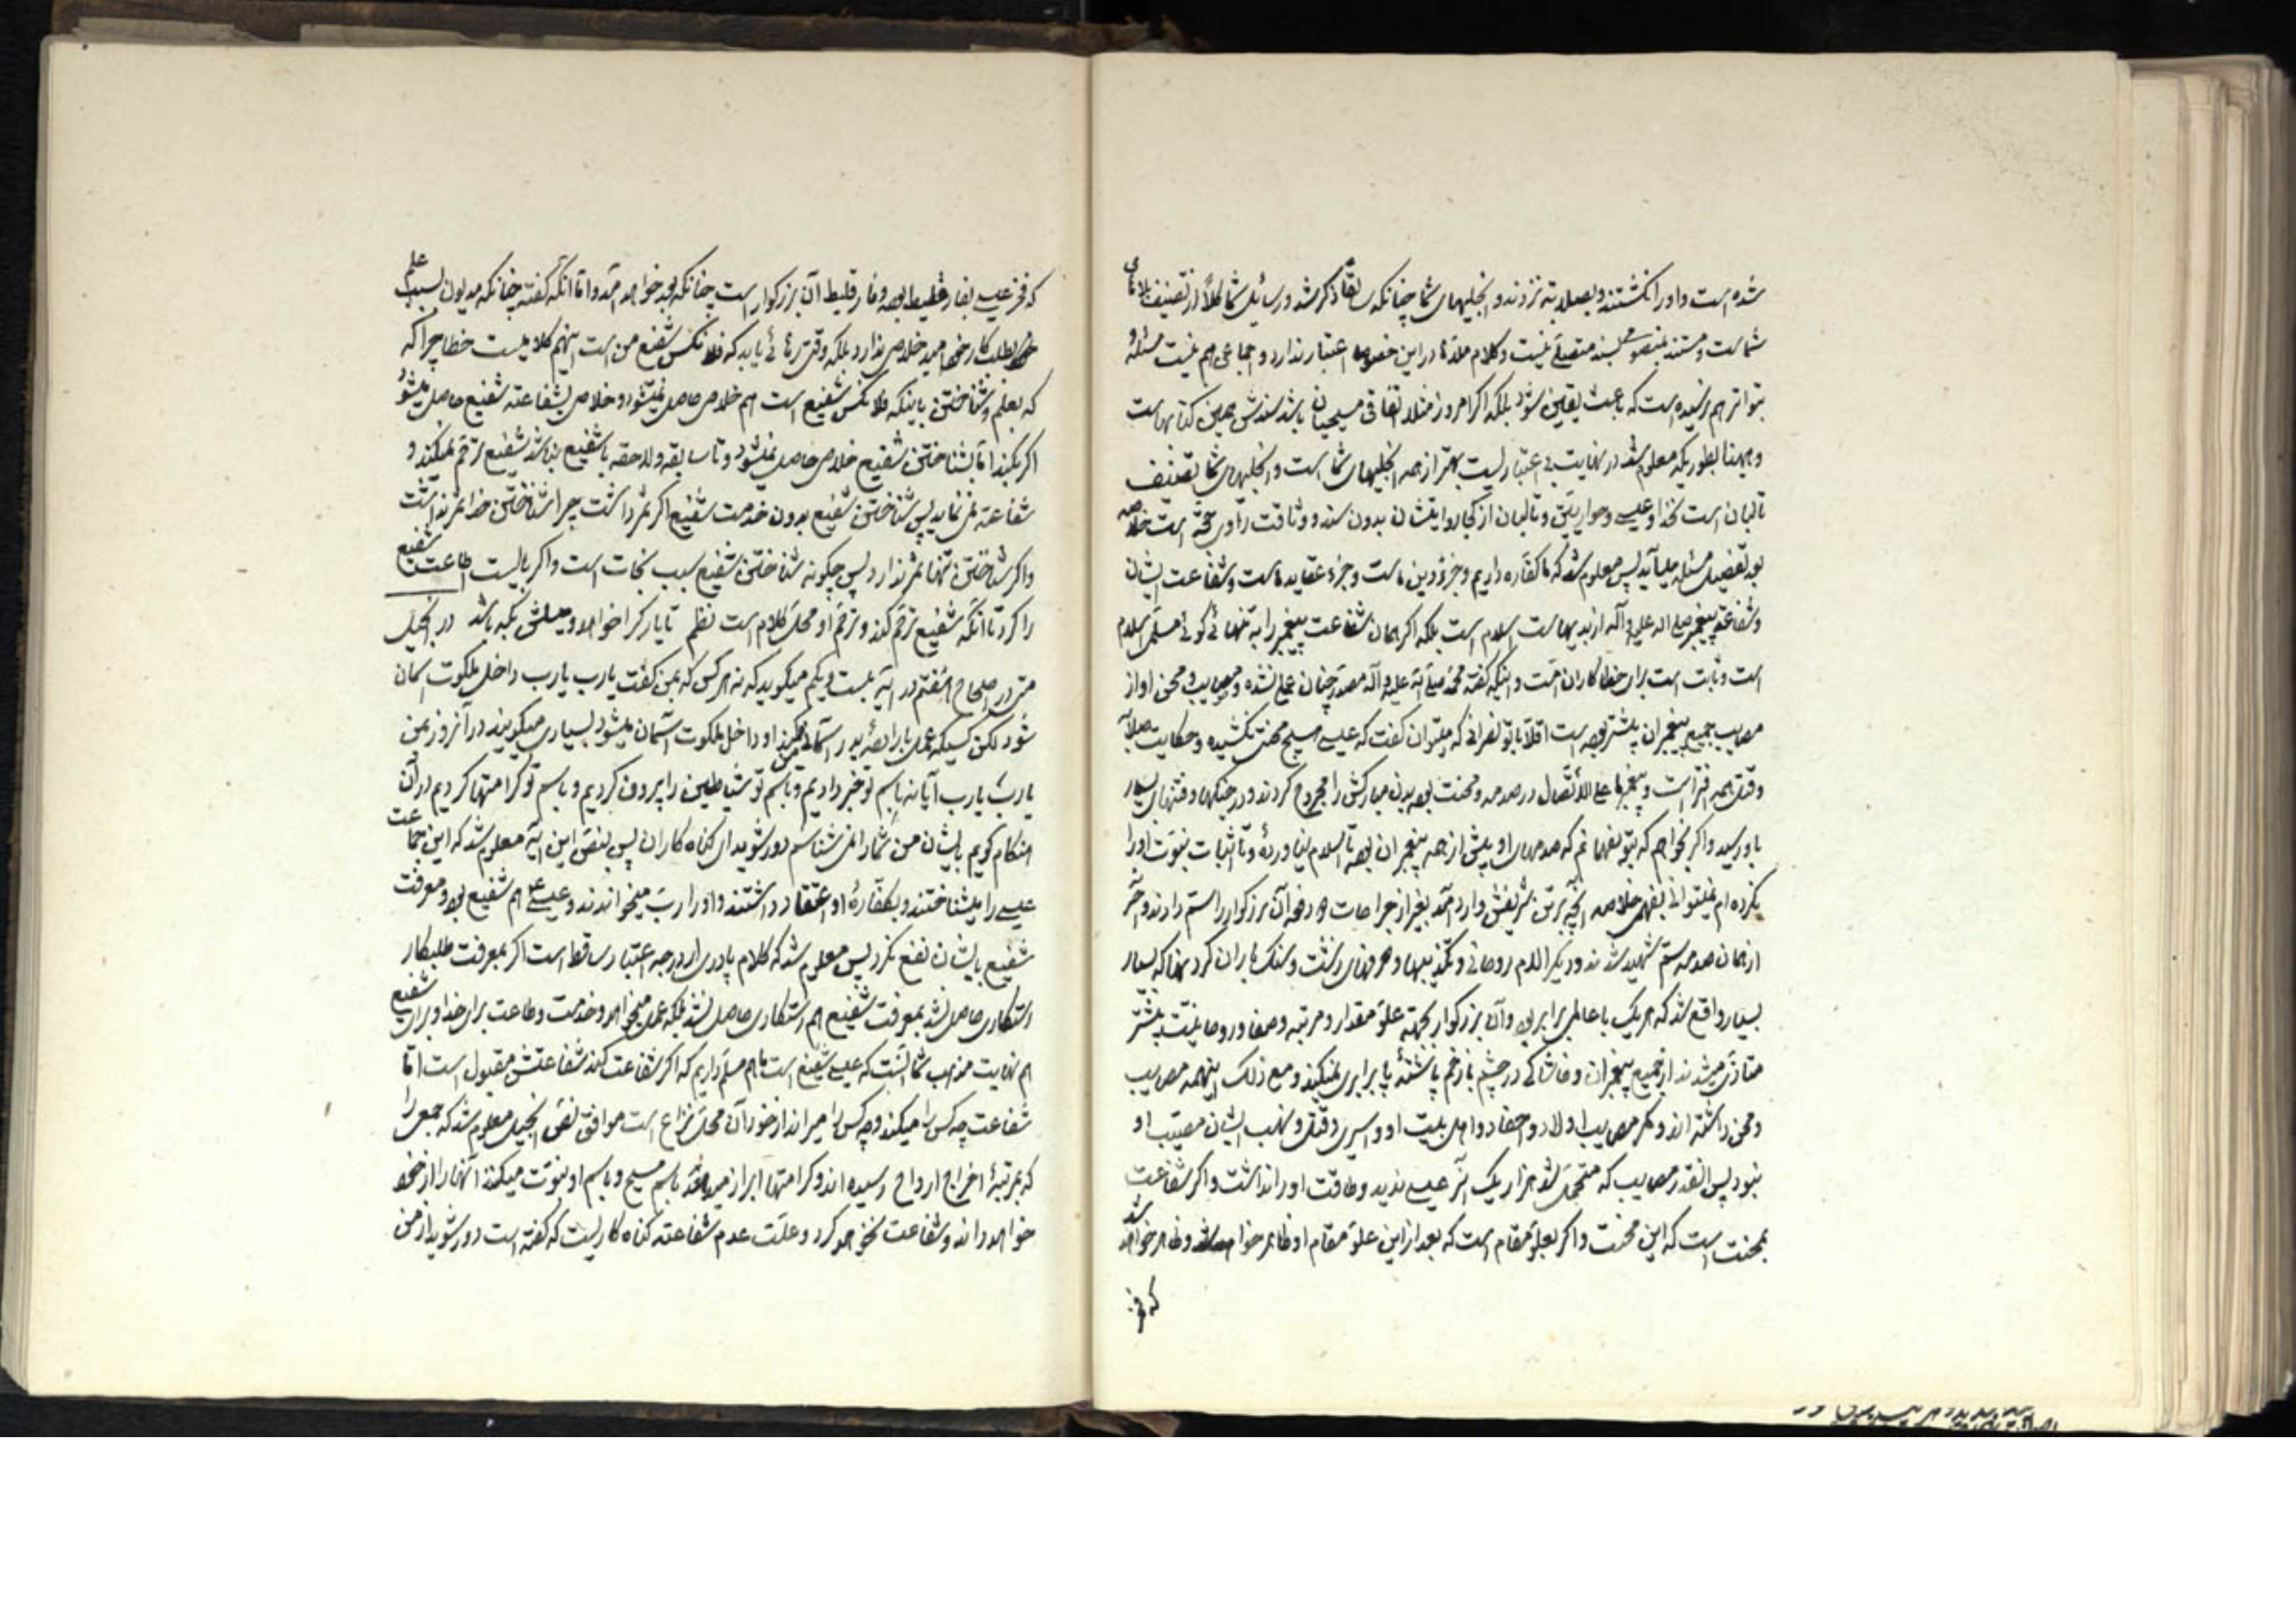 شده است و او را نکشتند و بصلابه نزدند و انجیلهای شما چنانکه سابقا ذکر شد و رسائل شما کلا از تصنیف ملاهای
شماست و مستند بنصوص نیست و کلام ملاها در این خصوصها اعتبار ندارد و اجماعی هم نیست مسئله و
بتواتر هم نرسیده است که باعث یقین شود بلکه اگر امروز مثلا اتفاقی مسیحیان باشد سندش همین کتابهاست
و اینها بطوریکه معلوم شد در نهایت بی اعتباریست بهتر از همه انجیلهای شماست و انجیلهای شما تصنیف
تابعان است نه خدا و عیسی و حواریین و تابعان از کجا روایتشان بدون سند و وثاقت راوی حجة است خلاصه
بعد تفصیل مسئله میاید پس معلوم شد که ما کفاره داریم و جزو دین ماست و جزء عقاید ماست و شفاعت ایشان
و شفاعة پیغمبر صلی الله علیه و آله از بدیهیات اسلام است بلکه اگر همان شفاعت پیغمبر را به تنهائی گوئی مسلمی اسلام
است و ثابت است برای خطاکاران امت و اینکه گفته محمد صلی الله علیه و آله مصدر چنان عملی نشده و مصایب و محن او از
مصایب جمیع پیغمبران بیشتر بوده است اولا با تو نصرانی که میتوان گفت که عیسی مسیح محنتی نکشیده و حکایت صلابه
و قتل همه افتراست و پیغمبر ما علی الاتصال در صدمه و محنت بود بدن مبارکش را مجروح کردند و در جنگها و فتنهای بسیار
باو رسید و اگر بخواهم که بتو بفهمانم که صدمهای او بیش از همه پیغمبران بوده تا اسلام نیاورده و تا اثبات نبوت او را
نکرده ام نمیتوانی بفهمی خلاصه آنچه بر تن شریفش وارد آمد بغیر از جراحات دو دفعه آن بزرگوار را سم دادند و آخر
از همان صدمه سم شهید شدند و دیگر آلام روحانی و تکذیبها و حرفهای زشت و سنگ باران کردنها که بسیار
بسیار واقع شد که هر یک با عالمی برابر بود و آن بزرگوار بجهة علو مقدار و مرتبه و صفا و روحانیت بیشتر
متاذی میشدند از جمیع پیغمبران و خاشاکی در چشم با زخم پاشنهٔ پا برابری نمیکند و مع ذلک اینهمه مصایب
و محن داشته اند و مگر مصایب اولاد و احفاد و اهل بیت او و اسیری و قتل و نهب ایشان مصیبت او
نبود پس آنقدر مصایب که متحمل شد هزار یک آنرا عیسی ندید و طاقت او را نداشت و اگر شفاعت
بمحنت است که این محنت و اگر بعلو مقام است که بعد از این علو مقام او ظاهر خواهد شد و ظاهر خواهد شد
که فخر
که فخر عیسی بفارقلیط بوده و فارقلیط آن بزرگوار است چنانکه بعد خواهد آمد و اما آنکه گفته چنانکه مدیون بسبب علم
بطلبکار خود امید خلاصی ندارد بلکه وقتی رهائی یابد که فلانکس شفیع من است اینهم کلامیست خطا چرا که
که بعلم و شناختن باینکه فلانکس شفیع است هم خلاصی حاصل نمیشود و خلاصی بشفاعة شفیع حاصل میشود
اگر بکند اما بشناختن شفیع خلاصی حاصل نمیشود و تا سابقه و لاحقه با شفیع نباشد شفیع ترحم نمیکند و
شفاعة نمی نماید پس شناختن شفیع بدون خدمت شفیع اگر ثمر داشت چرا شناختن خدا ثمر نداشت
و اگر شناختن تنها ثمر ندارد پس چگونه شناختن شفیع سبب نجات است و اگر بایست اطاعت شفیع
را کرد تا آنکه شفیع ترحم کند و ترحم او محل کلام است نظم تا یار کرا خواهد و میلش بکه باشد در انجیل
متی در اصحاح هفتم در آیه بیست و یکم میگوید که نه هر کس که بمن گفت یا رب یا رب داخل ملکوت آسمان
شود لکن کسیکه عمل بارادهٔ پدر آسمانی من کند او داخل ملکوت آسمان میشود بسیاری میگویند در آنروز بمن
یا رب یا رب آیا نه باسم تو خبر دادیم و باسم تو شیاطین را بیرون کردیم و باسم تو کرامتها کردیم در آن
هنگام گویم بایشان من شما را نمی شناسم دور شوید ای گناه کاران پس بنص این آیه معلوم شد که این جماعت
عیسی را میشناختند و بکفارهٔ او اعتقاد داشتند و او را رب میخواندند و عیسی ع هم شفیع بود و معرفت
شفیع بایشان نفع نکرد پس معلوم شد که کلام پادری از درجه اعتبار ساقط است اگر بمعرفت طلبکار
رستگاری حاصل نشد بمعرفت شفیع هم رستگاری حاصل نشد بلکه عمل میخواهد و خدمت و طاعت برای خدا و برای شفیع
هم نهایت مذهب شما اینست که عیسی شفیع است ما هم مسلم داریم که اگر شفاعت کند شفاعتش مقبول است اما
شفاعت چه کس را میکند و چه کس را میراند از خود آن محل نزاع است موافق نص انجیل معلوم شد که جمعی را
که بمرتبهٔ اخراج ارواح رسیده اند و کرامتها ابراز میدهند باسم مسیح و باسم او نبوت میکنند آنها را از خود
خواهد راند و شفاعت نخواهد کرد و علت عدم شفاعة گناه کاریست که گفته است دور شوید از من